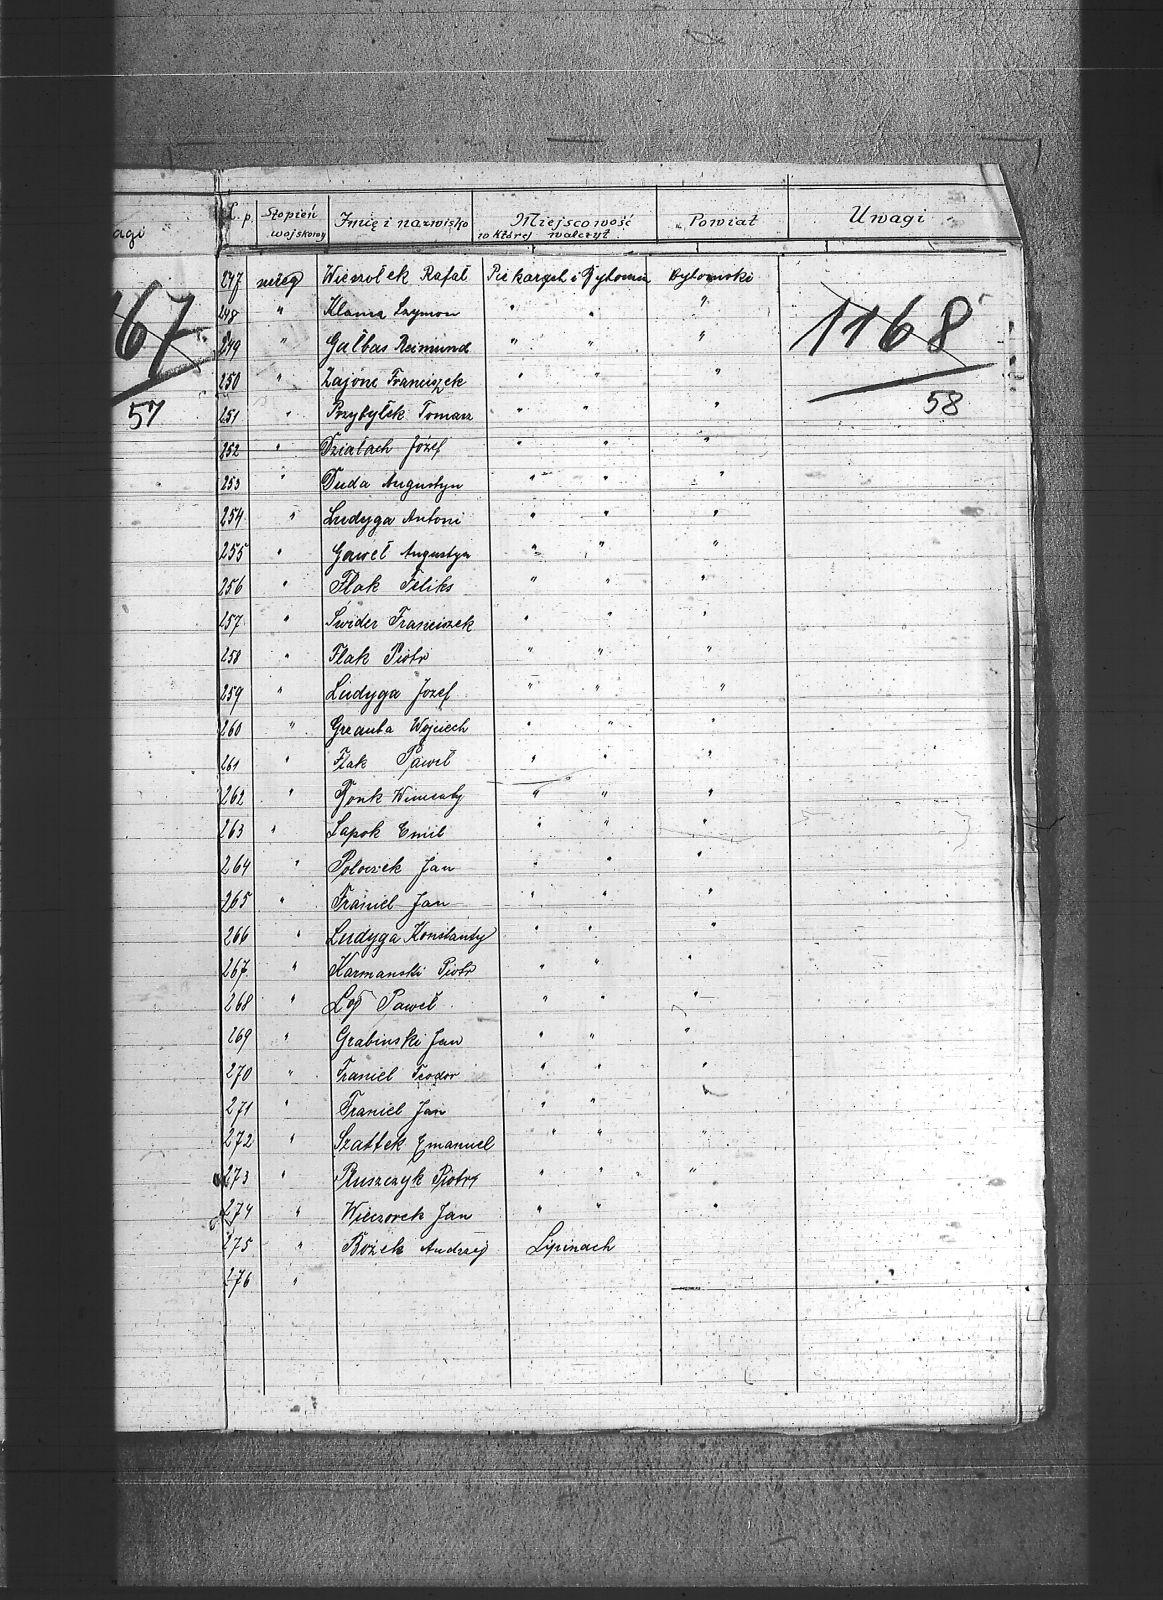 agi
L. p. Stopień wojskowy Imię i nazwisko Miejscowość w której walczył Powiat Uwagi
67
57
1168
58
247 szereg Wieczolek Rafał Piekarych i Bytomiu bytomski
248 " Klama Szymon " " "
249 " Galbas Reimund " " "
250 " Zając Franciszek " " "
251 " Przybyłek Tomasz " " "
252 " Działach Józef " " "
253 " Duda Augustyn " " "
254 " Ludyga Antoni " " "
255 " Gaweł Augustyn " " "
256 " Flak Feliks " " "
257 " Świder Franciszek " "
258 " Flak Piotr " " "
259 " Ludyga Józef " " "
260 " Wojciech " " "
261 " Flak Paweł " " "
262 " " " "
263 " Lapok Emil " " "
264 " Poloczek Jan " " "
265 " Franiel Jan " " "
266 " Ludyga Konstanty " " "
267 " Karmanski Piotr " " "
268 " Paweł " " "
269 " Grabinski Jan " " "
270 " Franiel Teodor " " "
271 " Franiel Jan " "
272 " Szattek Emanuel " " "
273 " Ruszczyk Piotr " " "
274 " Wieczorek Jan " " "
275 " Bożek Andrzej Lipinach
276 "